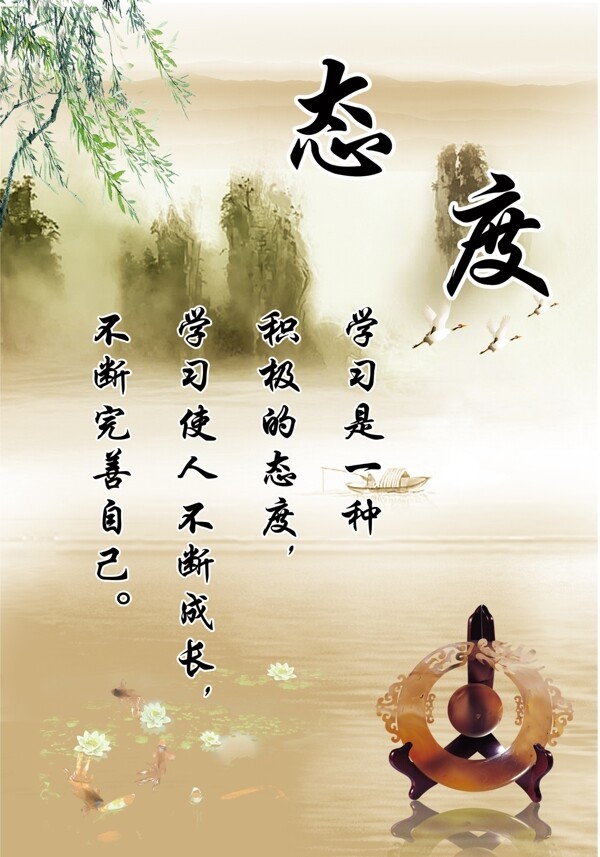 态度
学习是一种
积极的态度，
学习使人不断成长，
不断完善自己。